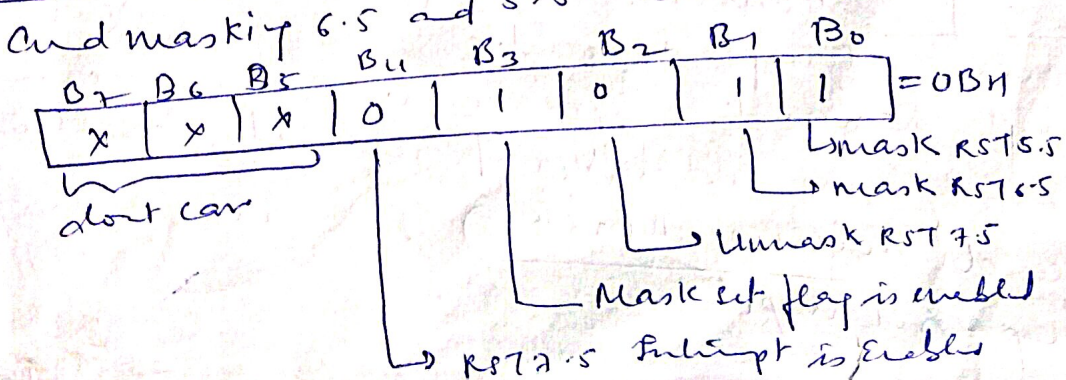 and masking 6.5 and
B7 B6 B5 B4 B3 B2 B1 B0
x x x 0 1 0 1 1 = 0BH
mask RST 5.5
dont care mask RST 6.5
Unmask RST 7.5
Mask set flag is enabled
RST 7.5 Interrupt is Enabled